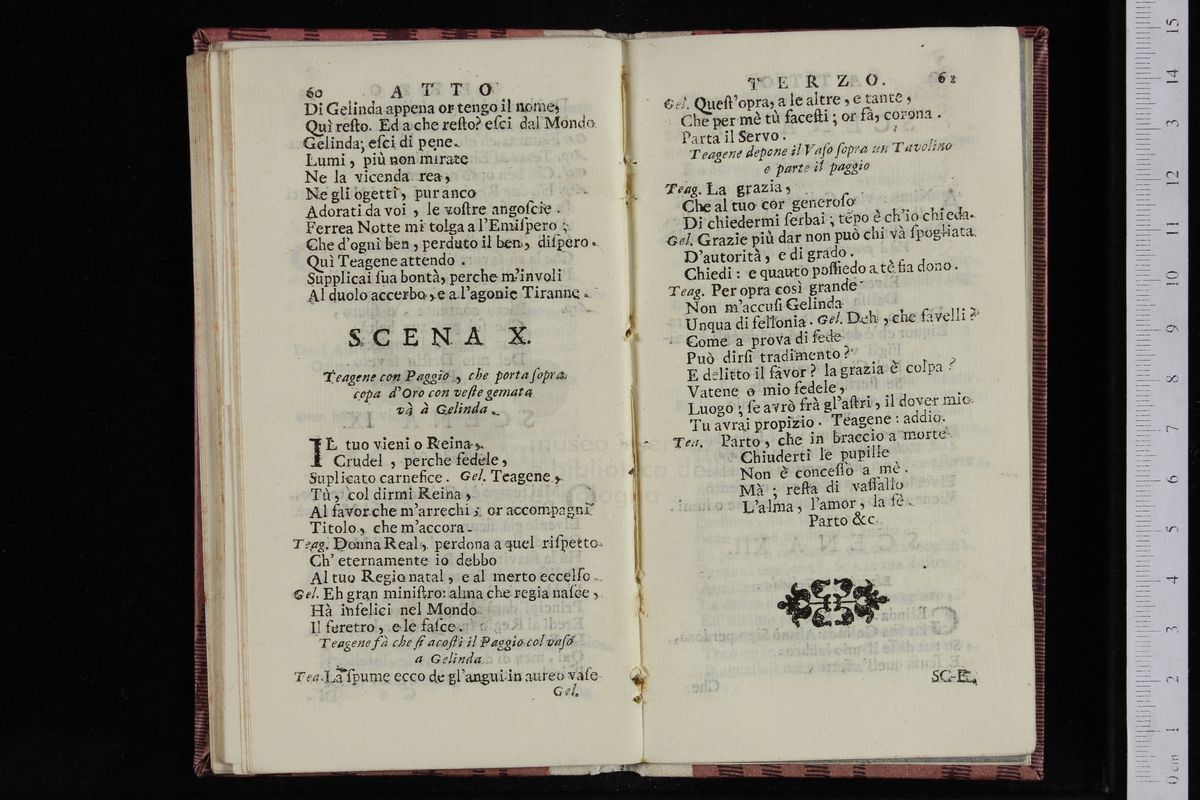 60 ATTO
Di Gelinda appena or tengo il nome,
Quì reſto. Ed a che reſto? eſci dal Mondo
Gelinda; eſci di pene.
Lumi, più non mirate
Ne la vicenda rea,
Ne gli ogetti, pur anco
Adorati da voi, le voſtre angoſcie.
Ferrea Notte mi tolga a l'Emiſpero;
Che d'ogni ben, perduto il ben, diſpero.
Quì Teagene attendo.
Supplicai ſua bontà, perche m'involi
Al duolo accerbo, e a l'agonie Tiranne.
SCENA X.
Teagene con Paggio, che porta ſopra
copa d'Oro con veſte gemata
và à Gelinda.
IL tuo vieni o Reina,
Crudel, perche fedele,
Suplicato carnefice. Gel. Teagene,
Tù, col dirmi Reina,
Al favor che m'arrechi; or accompagni
Titolo, che m'accora.
Teag. Donna Real, perdona a quel riſpetto
Ch' eternamente io debbo
Al tuo Regio natal, e al merto eccelſo.
Gel. Eh gran miniſtro: alma che regia naſce,
Hà infelici nel Mondo
Il feretro, e le faſce.
Teagene fà che ſi acoſti il Paggio col vaſo
a Gelinda
Tea. Là ſpume ecco de gl'angui in aureo vaſe
Gel.
TERZO. 61
Gel. Queſt'opra, a le altre, e tante,
Che per mè tù faceſti; or fà, corona.
Parta il Servo.
Teagene depone il Vaſo ſopra un Tavolino
e parte il paggio
Teag. La grazia,
Che al tuo cor generoſo
Di chiedermi ſerbai; tẽpo è ch'io chieda.
Gel. Grazie più dar non può chi và ſpogliata
D'autorità, e di grado.
Chiedi: e quauto poſſiedo a tè fia dono.
Teag. Per opra così grande
Non m'accuſi Gelinda
Unqua di fellonia. Gel. Deh, che favelli?
Come a prova di fede
Può dirſi tradimento?
E delitto il favor? la grazia è colpa?
Vatene o mio fedele,
Luogo; ſe avrò frà gl'aſtri, il dover mio
Tu avrai propizio. Teagene: addio.
Tea. Parto, che in braccio a morte
Chiuderti le pupille
Non è conceſſo a mè.
Mà; reſta di vaſſallo
L'alma, l'amor, la fè.
Parto &c.
SCE-